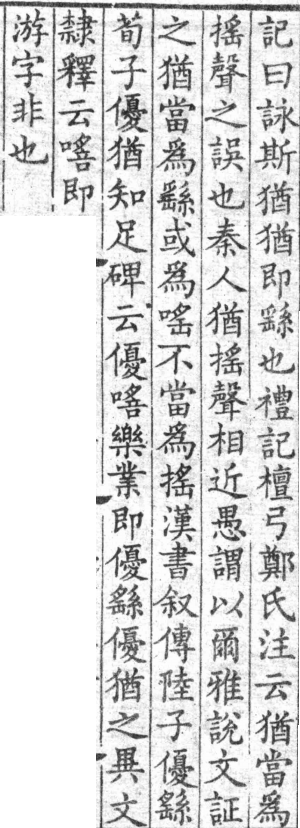 記曰詠斯猶猶即繇也禮記檀弓鄭氏注云猶當爲
搖聲之誤也秦人猶搖聲相近愚謂以爾雅說文証
之猶當爲繇或爲嗂不當爲搖漢書叙傳陸子優繇
荀子優猶知足碑云優㗖樂業即優繇優猶之異文
隸釋云㗖即
游字非也